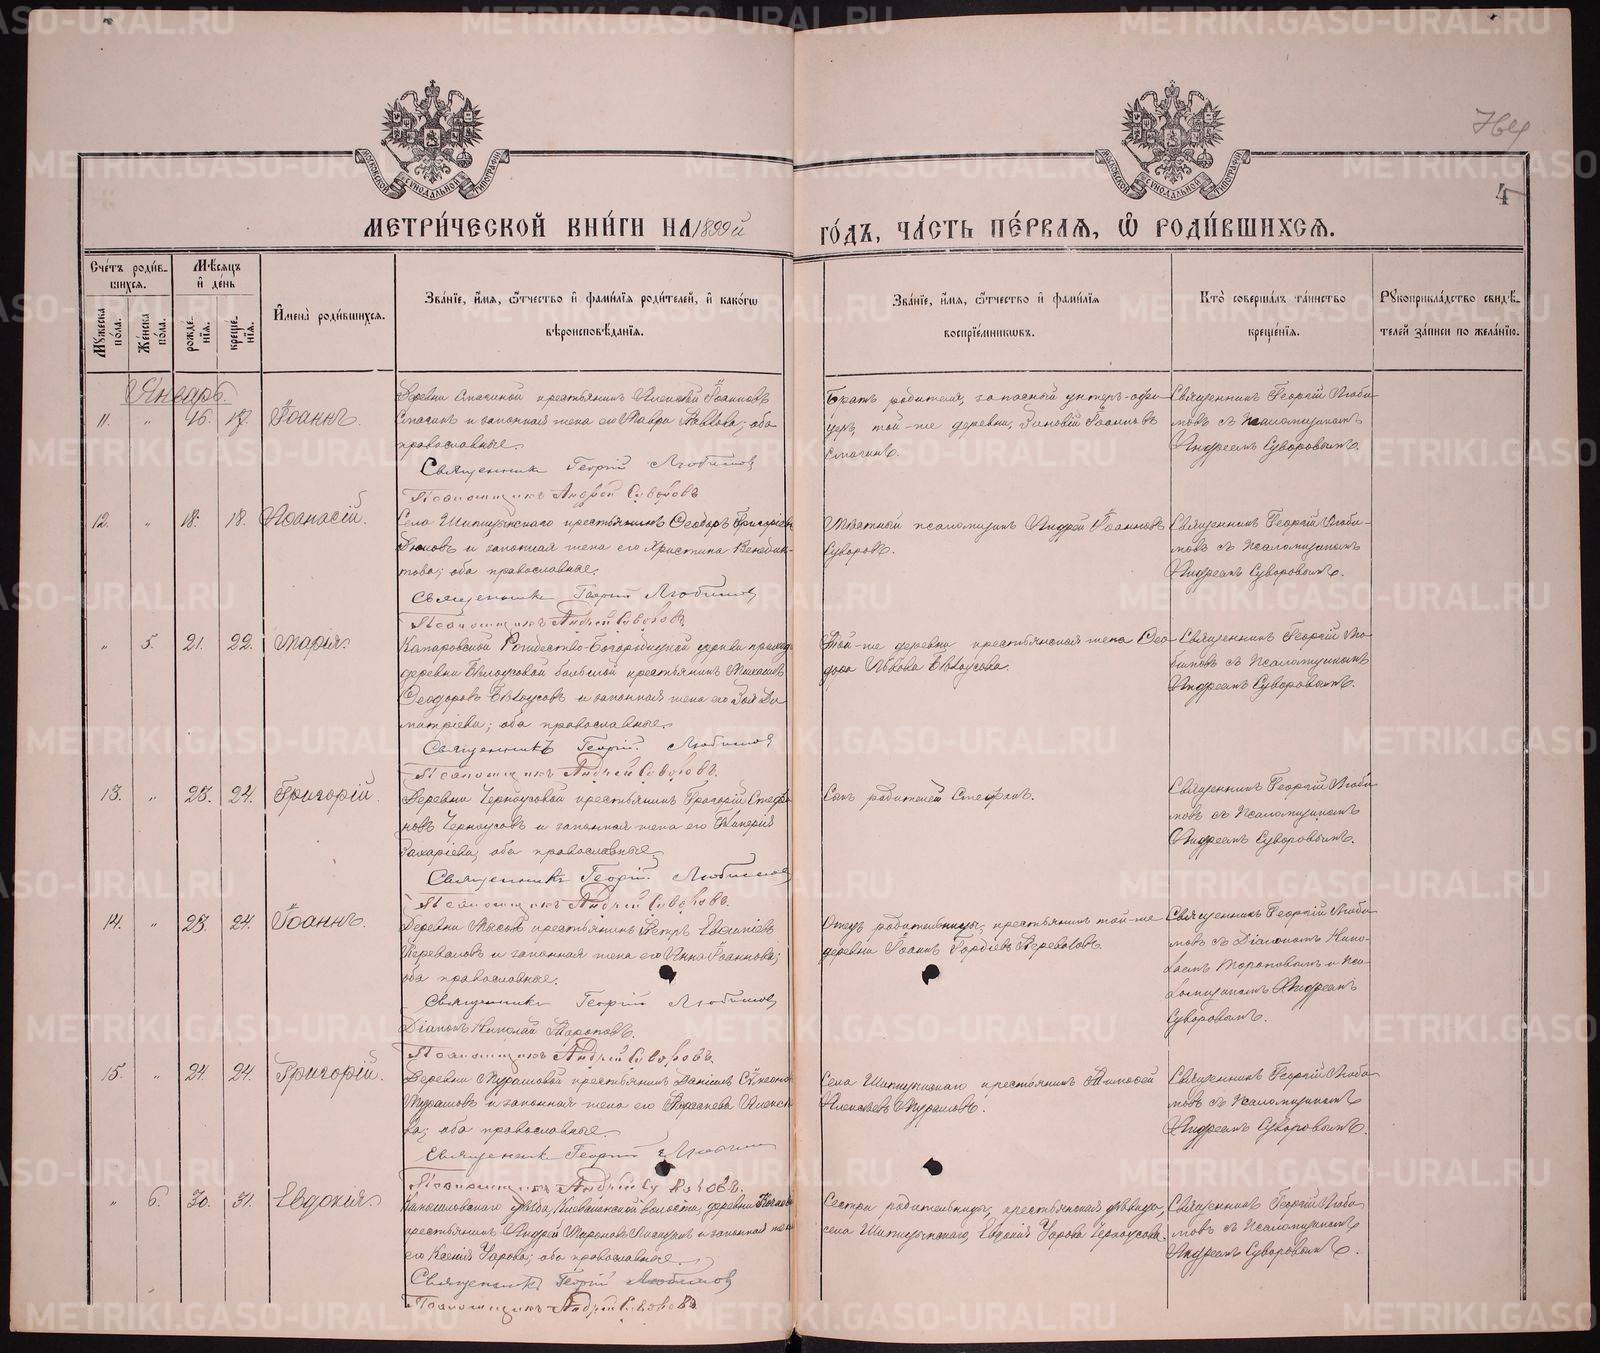 МЕТРИ́ЧЕСКОЙ КНИ́ГИ НА 1899й
ГО́ДЪ, ЧА́СТЬ ПЕ́РВАѦ, Ѿ РОДИ́ВШИХСѦ.
4
Сче́тъ роди́в-
шихся.
Мѣсяцъ
и де́нь
Му́жеска
по́ла.
Же́нска
по́ла.
рожде-
нїя.
креще-
нїя.
И҆мена̀ роди́вшихся.
Зва́нїе, и҆́мя, ѻ҆́тчество и҆ фамилїя роди́телей, и҆ како́гѡ
вѣроисповѣ́данїя.
Зва́нїе, и҆́мя, ѻ҆́тчество и҆ фами́лїя
воспрїе́мниковъ.
Кто̀ соверша́лъ та́инство
креще́нїя.
Рукоприкла́дство свидѣ́-
телей за́писи по жела́нїю.
Январь.
11. „ 16. 17. Іоаннъ.
Деревни Спасиной крестьянинъ Алексѣй Іоанновъ
и законная жена его Мавра Павлова; оба
православные.
Священникъ Георгій Любимовъ
Псаломщикъ Андрей Суворовъ
Братъ родителя, запасный унтеръ-офи-
церъ той-же деревни, Зиновій Іоанновъ
Священникъ Георгій Люби-
мовъ съ Псаломщикомъ
Андреемъ Суворовымъ.
12. „ 18. 18. Аѳанасій.
Села Шипицынскаго крестьянинъ Ѳеодоръ Григорьевъ
и законная жена его Христина Венедик-
това; оба православные.
Священникъ Георгій Любимовъ
Псаломщикъ Андрей Суворовъ.
Штатный псаломщикъ Андрей Іоанновъ
Суворовъ.
Священникъ Георгій Люби-
мовъ съ Псаломщикомъ
Андреемъ Суворовымъ.
„ 5. 21. 22. Марія.
Рождество-Богородицкой церкви прихода
деревни Бѣлоусовой большой крестьянинъ
Ѳеодоровъ Бѣлоусовъ и законная жена его Зоя Ди-
митріева; оба православные.
Священникъ Георгій Любимовъ
Псаломщикъ Андрей Суворовъ.
Той-же деревни крестьянская жена Ѳео-
дора Львова Бѣлоусова.
Священникъ Георгій Лю-
бимовъ съ Псаломщикомъ
Андреемъ Суворовымъ.
13. „ 23. 24. Григорій.
Деревни Черноусовой крестьянинъ Григорій Стефа-
новъ Черноусовъ и законная жена его
Захаріева; оба православные.
Священникъ Георгій Любимовъ
Псаломщикъ Андрей Суворовъ.
Сынъ родителей Стефанъ.
Священникъ Георгій Люби-
мовъ съ Псаломщикомъ
Андреемъ Суворовымъ.
14. „ 23. 24. Іоаннъ.
Деревни крестьянинъ Петръ
и законная жена его Анна Іоаннова;
оба православные.
Священникъ Георгій Любимовъ
Діаконъ Николай Тороповъ.
Псаломщикъ Андрей Суворовъ.
Отецъ родительницы, крестьянинъ той-же
деревни Іоаннъ Гордіевъ Переваловъ.
Священникъ Георгій Люби-
мовъ съ Діакономъ Нико-
лаемъ Тороповымъ и Пса-
ломщикомъ Андреемъ
Суворовымъ.
15. „ 24. 24. Григорій.
Деревни Мурашовой крестьянинъ Даніилъ
Мурашовъ и законная жена его
оба православные.
Священникъ Георгій
Псаломщикъ Андрей Суворовъ.
Села Шипицынскаго крестьянинъ Тимоѳей
Алексѣевъ Мурашовъ.
Священникъ Георгій Люби-
мовъ съ Псаломщикомъ
Андреемъ Суворовымъ.
„ 6. 30. 31. Евдокія.
Камышловскаго уѣзда, волости, деревни
крестьянинъ Андрей и законная жена
его Ксенія Уарова; оба православные.
Священникъ Георгій Любимовъ
Псаломщикъ Андрей Суворовъ
Сестра родительницы, крестьянская дѣвица,
села Шипицынскаго, Евдокія Уарова Черноусова.
Священникъ Георгій Люби-
мовъ съ Псаломщикомъ
Андреемъ Суворовымъ.
METRIKI.GASO-URAL.RU